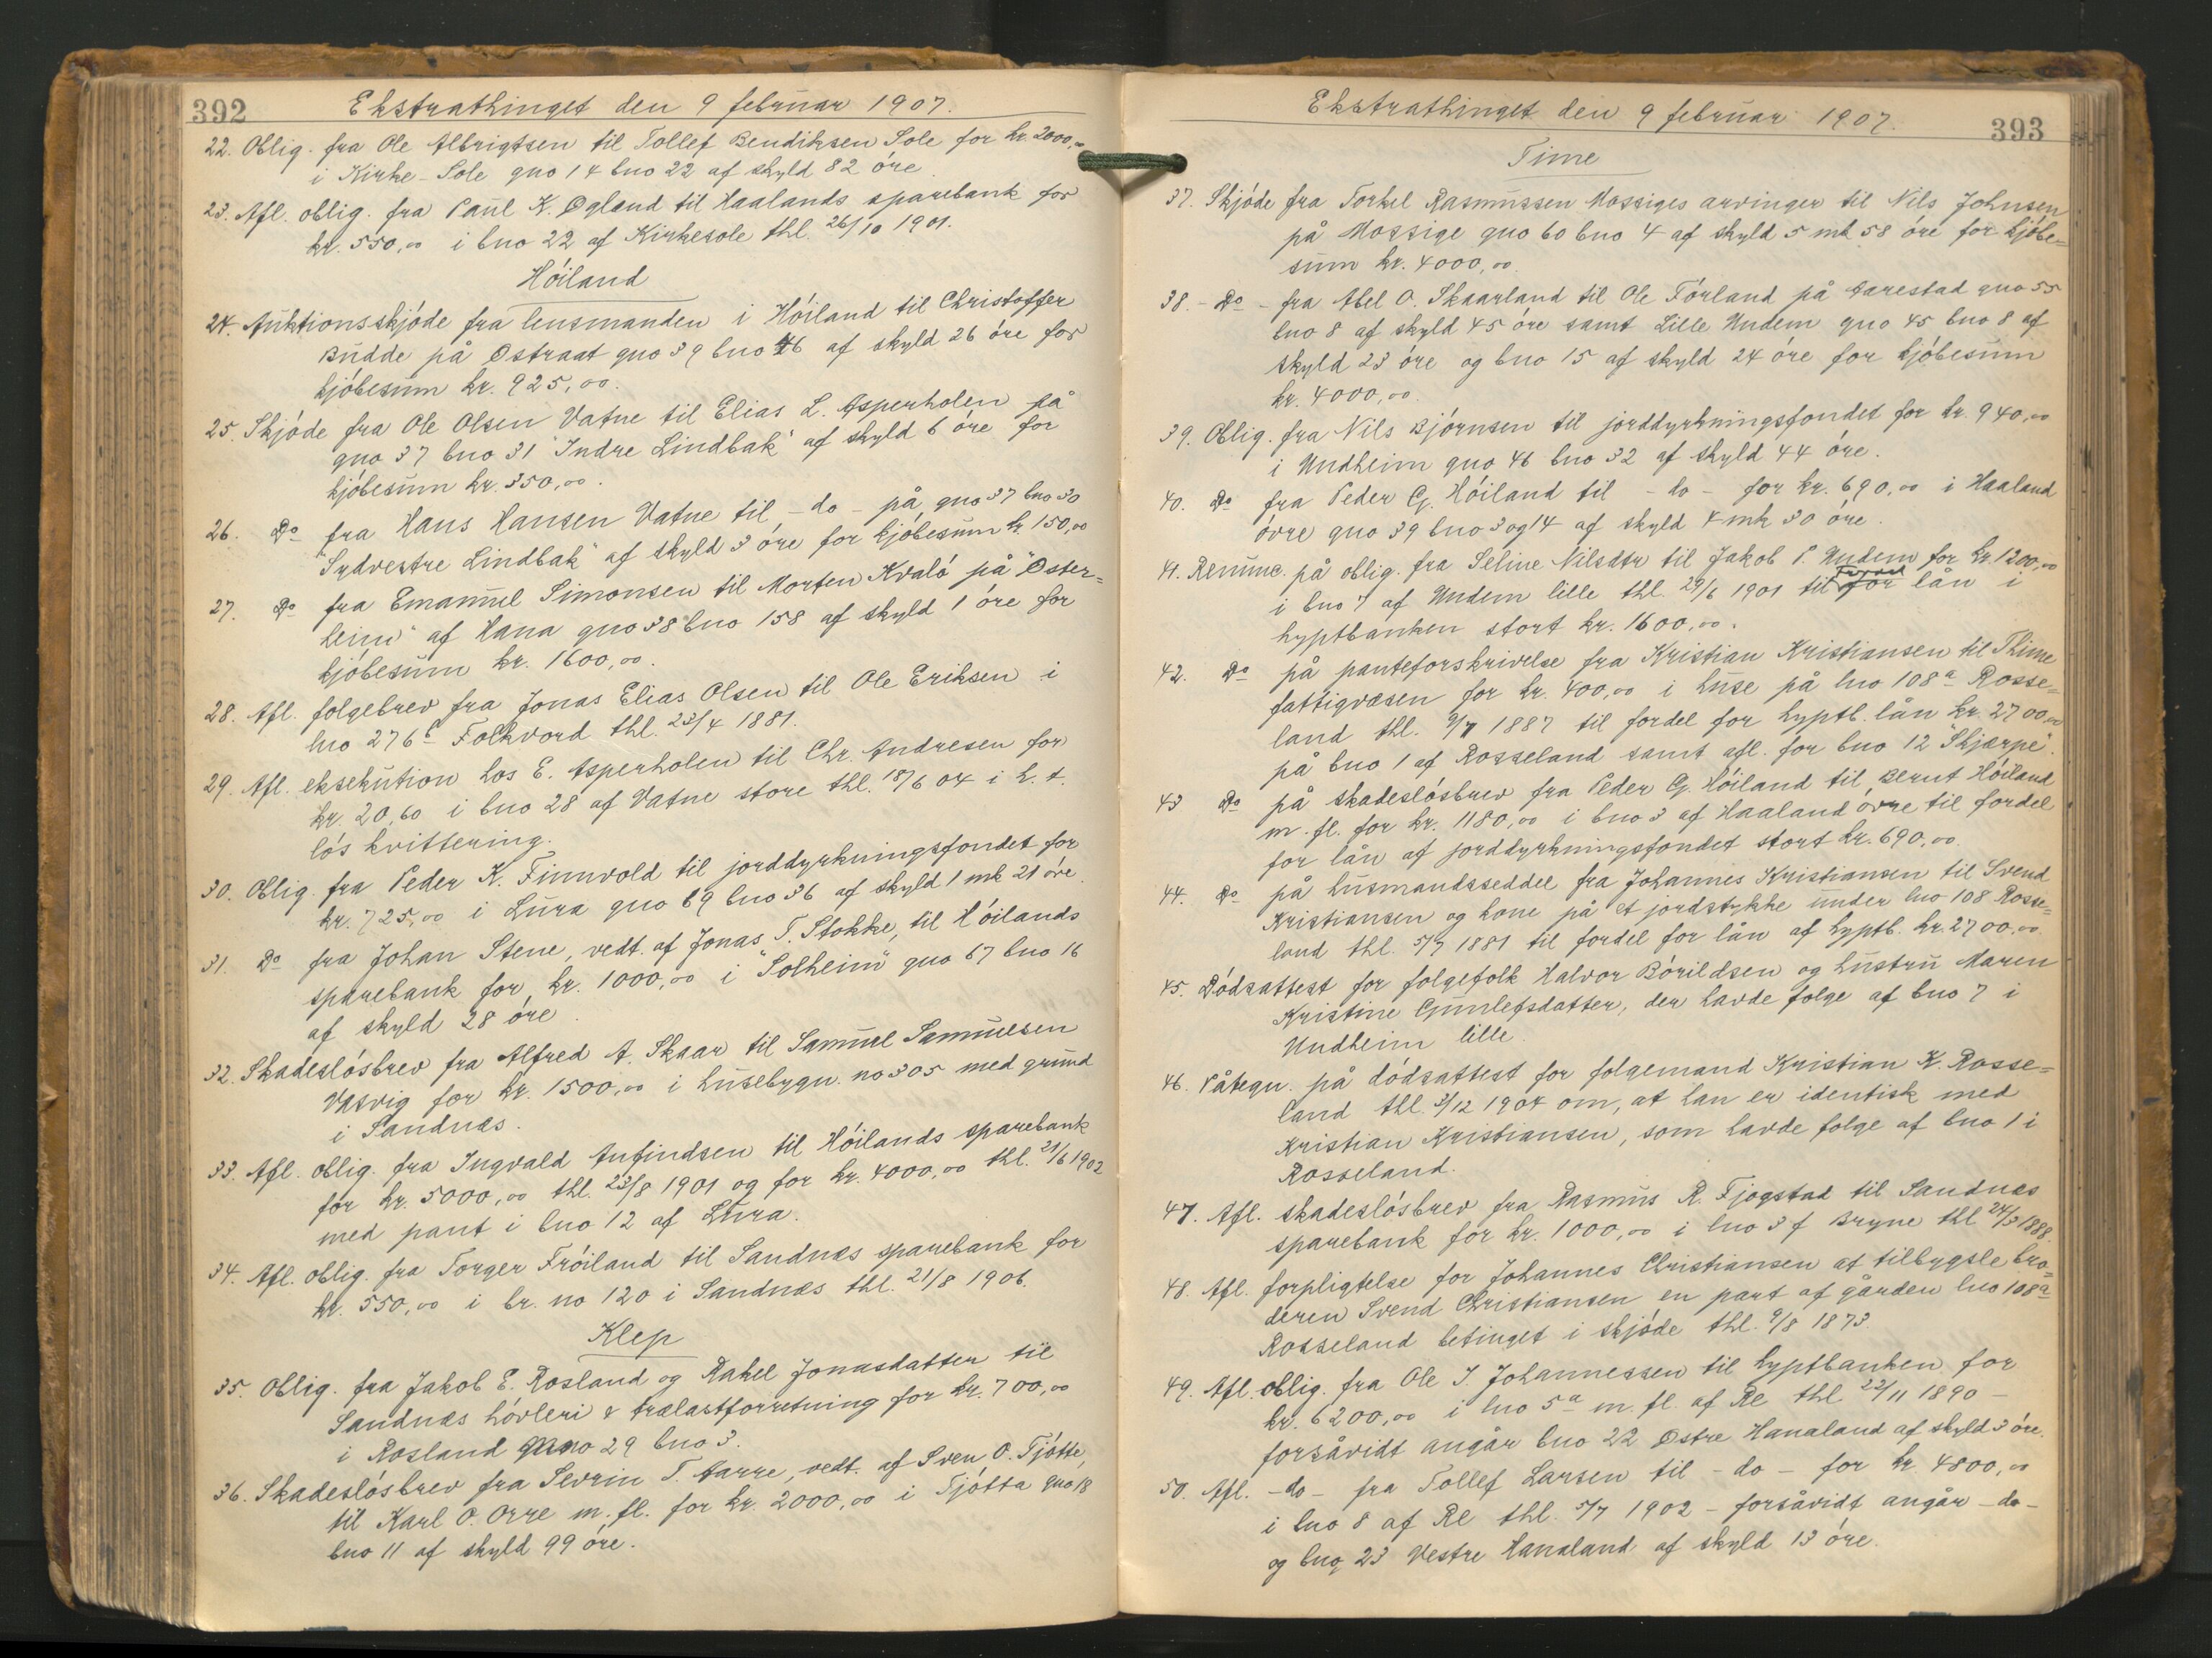 392
Ekstrathinget den 9 februar 1907.
22. Oblig. fra Ole Albrigtsen til Tollef Bendiksen Sole for kr. 2000,00
i Kirke-Sole gno 14 bno 22 af skyld 82 øre.
23. Afl. oblig. fra Paul K. Øgland til Haalands sparebank for
kr. 550,00 i bno 22 af Kirkesole thl. 26/10 1901.
Høiland
24. Auktionsskjøde fra lensmanden i Høiland til Christoffer
Budde på Østraat gno 39 bno 46 af skyld 26 øre for
kjøbesum kr. 925,00.
25. Skjøde fra Ole Olsen Vatne til Elias L. Asperholen på
gno 37 bno 31 "Indre Lindbak" af skyld 6 øre for
kjøbesum kr. 350,00.
26. Do fra Hans Hansen Vatne til - do - på gno 37 bno 30
"Sydvestre Lindbak" af skyld 3 øre for kjøbesum kr. 150,00
27. Do fra Emanuel Simonsen til Morten Kvalø på "Øster=
heim" af Hana gno 38 bno 158 af skyld 1 øre for
kjøbesum kr. 1600,00.
28. Afl. folgebrev fra Jonas Elias Olsen til Ole Eriksen i
lno 276c Folkvord thl. 23/4 1881.
29. Afl. eksekution hos E. Asperholen til Chr. Andresen for
kr. 20,60 i bno 28 af Vatne store thl. 18/6 04 i h. t.
løs kvittering.
30. Oblig. fra Peder K. Finnvold til jorddyrkningsfondet for
kr. 725,00 i Lura gno 69 bno 36 af skyld 1 mk 21 øre.
31. Do fra Johan Stene, vedt. af Jonas T. Stokke, til Høilands
sparebank for kr. 1000,00 i "Solheim" gno 67 bno 16
af skyld 28 øre.
32. Skadesløsbrev fra Alfred A. Skaar til Samuel Samuelsen
Vasvig for kr. 1500,00 i husebygn. no 305 med grund
i Sandnæs.
33. Afl. oblig. fra Ingvald Anfindsen til Høilands sparebank
for kr. 5000,00 thl. 23/8 1901 og for kr. 4000,00 thl. 21/6 1902
med pant i bno 12 af Lura.
34. Afl. oblig. fra Torger Frøiland til Sandnæs sparebank for
kr. 550,00 i br. no 120 i Sandnæs thl. 21/8 1906.
Klep
35. Oblig. fra Jakob E. Rosland og Rakel Jonasdatter til
Sandnæs høvleri & trælastforretning for kr. 700,00
i Rosland gno 29 bno 3.
36. Skadesløsbrev fra Sevrin T. Aarre, vedt. af Sven O. Tjøtte,
til Karl O. Orre m. fl. for kr. 2000,00 i Tjøtta gno 18
bno 11 af skyld 99 øre.
Ekstrathinget den 9 februar 1907.
393
Time
37. Skjøde fra Torkel Rasmussen Mossiges arvinger til Nils Johnsen
på Mossige gno 60 bno 4 af skyld 5 mk 58 øre for kjøbe=
sum kr. 4000,00.
38. - Do - fra Abel O. Skaarland til Ole Førland på Garestad gno 55
bno 8 af skyld 45 øre samt Lille Undem gno 45 bno 8 af
skyld 23 øre og bno 15 af skyld 24 øre for kjøbesum
kr. 4000,00.
39. Oblig. fra Nils Bjørnsen til jorddyrkningsfondet for kr. 940,00
i Undheim gno 46 bno 32 af skyld 44 øre.
40. Do fra Peder G. Høiland til - do - for kr. 690,00 i Haaland
øvre gno 39 bno 3 og 14 af skyld 4 mk 30 øre.
41. Renunc. på oblig. fra Seline Nilsdtr til Jakob P. Undem for kr. 1200,00
i bno 7 af Undem lille thl. 29/6 1901 til for lån i
hyptbanken stort kr. 1600,00.
42. Do på panteforskrivelse fra Kristian Kristiansen til Thime
fattigvæsen for kr. 400,00 i huse på lno 108a Rosse=
land thl. 9/7 1887 til fordel for hyptb. lån kr. 2700,00
på bno 1 af Rosseland samt afl. for bno 12 "Skjærpe".
43 Do på skadesløsbrev fra Peder G. Høiland til Bernt Høiland
m. fl. for kr. 1180,00 i bno 3 af Haaland øvre til fordel
for lån af jorddyrkningsfondet stort kr. 690,00.
44. Do på husmandsseddel fra Johannes Kristiansen til Svend
Kristiansen og kone på et jordstykke under lno 108 Rosse=
land thl. 5/7 1881 til fordel for lån af hyptb. kr. 2700,00.
45. Dødsattest for folgefolk Halvor Bórildsen og hustru Maren
Kristine Gunlefsdatter, der havde folge af bno 7 i
Undheim lille.
46. Påtegn. på dødsattest for folgemand Kristian K. Rosse=
land thl. 3/12 1904 om, at han er identisk med
Kristian Kristiansen, som havde folge af bno 1 i
Rosseland.
47. Afl. skadesløsbrev fra Rasmus R. Fjogstad til Sandnæs
sparebank for kr. 1000,00 i lno 3 f Bryne thl 24/3 1888.
48. Afl. forpligtelse for Johannes Christiansen at tilbygsle bro=
deren Svend Christiansen en part af gården lno 108a
Rosseland betinget i skjøde thl. 9/8 1873.
49. Afl. oblig. fra Ole I. Johannessen til hyptbanken for
kr. 6200,00 i lno 5a m. fl. af Re thl. 22/11 1890 -
forsåvidt angår bno 22 Østre Hanaland af skyld 3 øre.
50. Afl. - do - fra Tollef Larsen til - do - for kr. 4800,00
i bno 8 af Re thl. 5/7 1902 - forsåvidt angår - do -
og bno 23 Vestre Hanaland af skyld 13 øre.